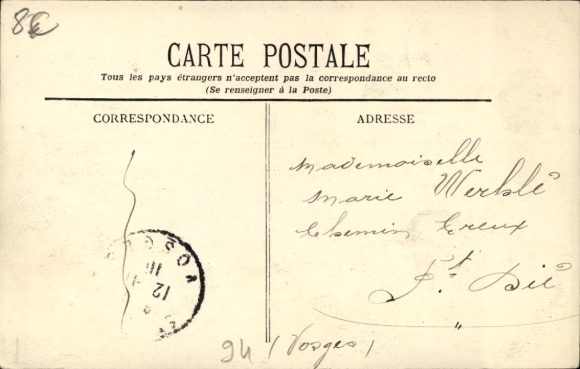 8€
CARTE POSTALE
Tous les pays étrangers n'acceptent pas la correspondance au recto
(Se renseigner à la Poste)
CORRESPONDANCE
ADRESSE
Mademoiselle
Marie Werblé
Chemin Creux
St. Dié
(Vosges)
94
VOSGES
12